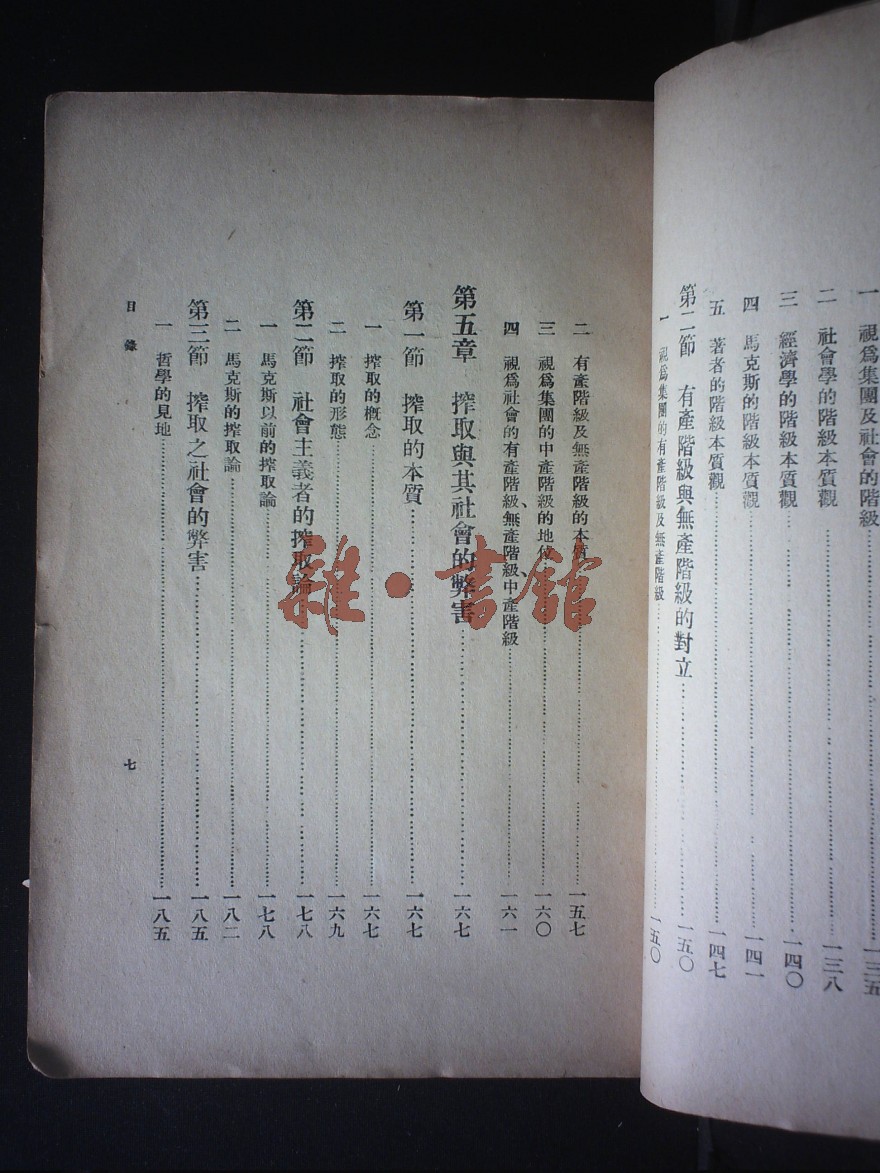 一　視爲集團及社會的階級……一三五
二　社會學的階級本質觀……一三八
三　經濟學的階級本質觀……一四〇
四　馬克斯的階級本質觀……一四一
五　著者的階級本質觀……一四七
第二節　有產階級與無產階級的對立……一五〇
一　視爲集團的有產階級及無產階級……一五〇
二　有產階級及無產階級的本質……一五七
三　視爲集團的中產階級的地位……一六〇
四　視爲社會的有產階級、無產階級、中產階級……一六一
第五章　搾取與其社會的弊害……一六七
第一節　搾取的本質……一六七
一　搾取的概念……一六七
二　搾取的形態……一六九
第二節　社會主義者的搾取論……一七八
一　馬克斯以前的搾取論……一七八
二　馬克斯的搾取論……一八二
第三節　搾取之社會的弊害……一八五
一　哲學的見地……一八五
目錄
七
雜·書館